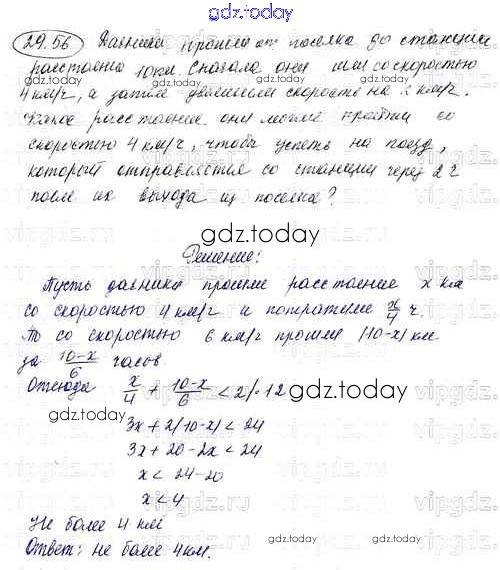 gdz.today
29.56 Дачники прошли от поселка до станции
расстояние 10 км. Сначала они шли со скоростью
4 км/ч, а затем увеличили скорость на 2 км/ч.
Какое расстояние они могли пройти со
скоростью 4 км/ч, чтобы успеть на поезд,
который отправляется со станции через 2 ч
после их выхода из поселка?
gdz.today
Решение:
Пусть дачники прошли расстояние x км
со скоростью 4 км/ч и потратили x/4 ч.
То со скоростью 6 км/ч прошли (10-x) км
за (10-x)/6 часов
Отсюда x/4 + (10-x)/6 < 2 |·12
3x + 2(10-x) < 24
3x + 20 - 2x < 24
x < 24-20
x < 4
Не более 4 км
Ответ: не более 4 км.